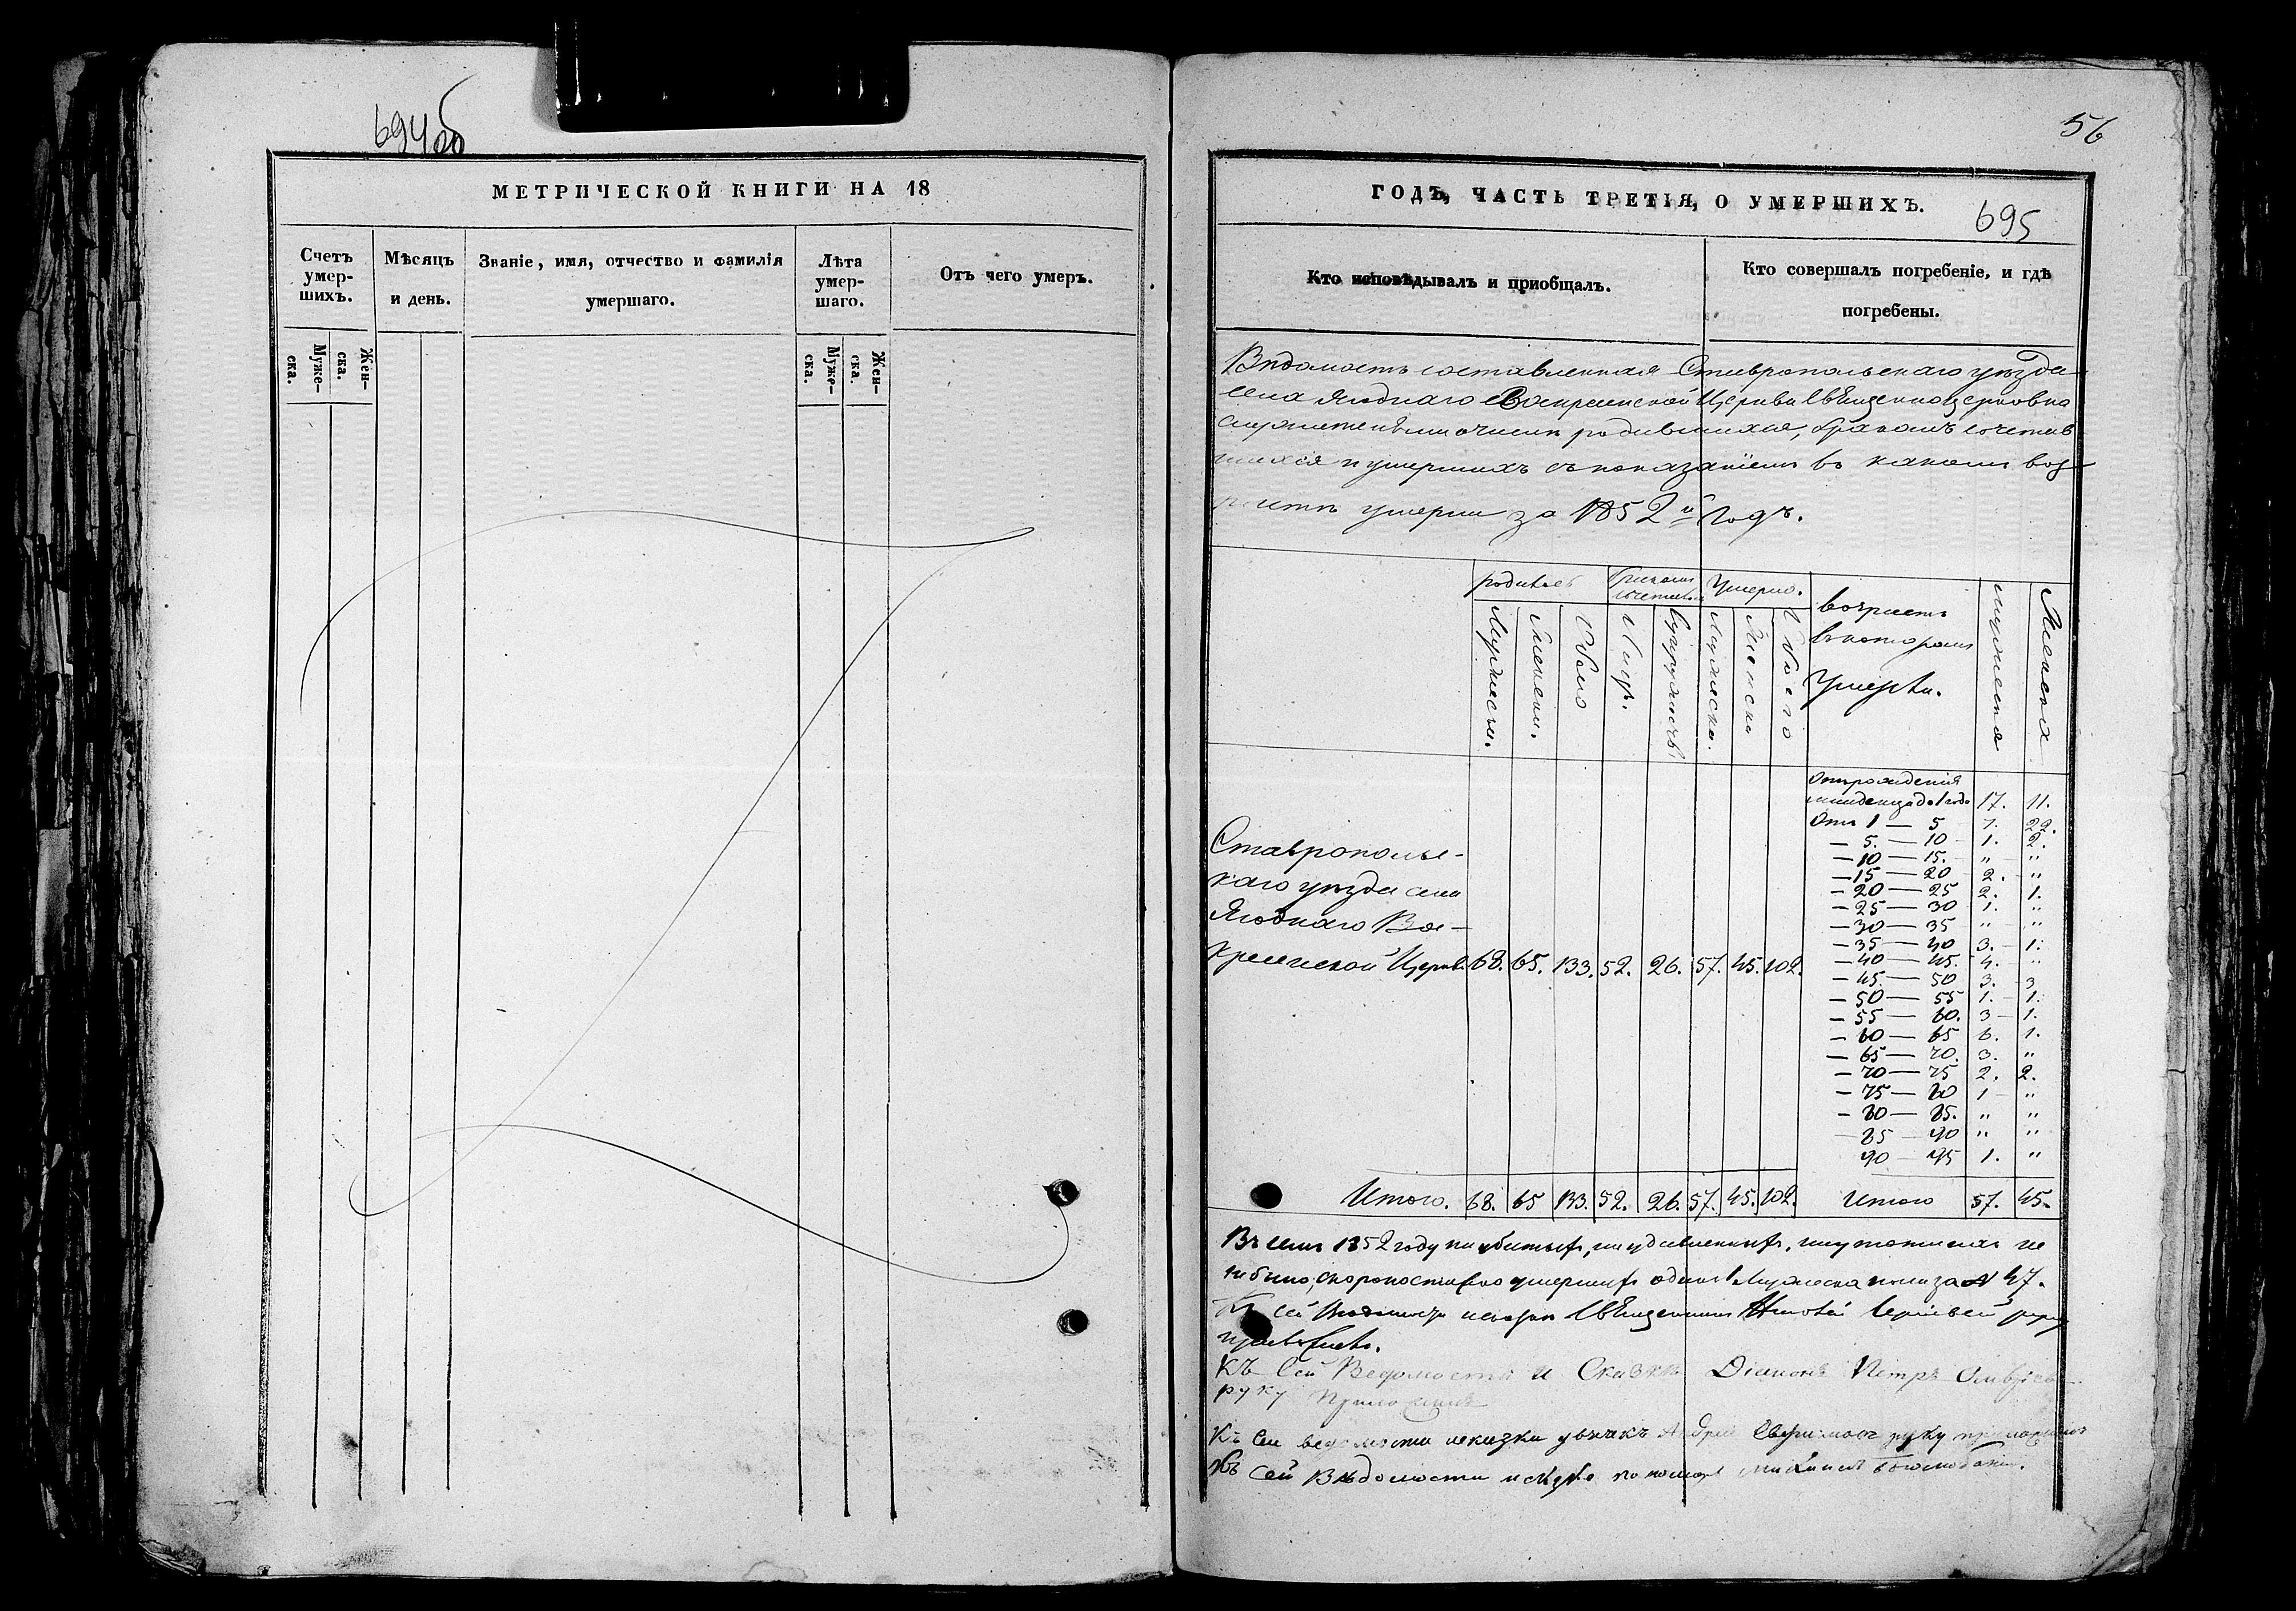 694об
МЕТРИЧЕСКОЙ КНИГИ НА 18
Счетъ умер-
шихъ.
Мѣсяцъ
и день.
Званіе, имя, отчество и фамилія
умершаго.
Лѣта
умер-
шаго.
Отъ чего умеръ.
Муже-
ска.
Жен-
ска.
Муже-
ска.
Жен-
ска.
56
ГОДЪ, ЧАСТЬ ТРЕТІЯ, О УМЕРШИХЪ.
695
Кто исповѣдывалъ и приобщалъ.
Кто совершалъ погребеніе, и гдѣ
погребены.
Вѣдомость составленная Ставропольскаго уѣзда
села Ягоднаго Воскресенской Церкви Священноцерковно
служителями о числѣ родившихся, бракомъ сочетав
шихся и умершихъ съ показаніемъ въ какомъ воз
растѣ умерли за 1852й Годъ.
родилось
Бракомъ
Умерло.
возрастъ
въ которомъ
Умерли.
мужеска
Женска
Мужеска.
Женска.
Обоего
Лицъ.
Супружествъ
Мужеска.
Женска
Обоего
Отъ рожденія
младенца до 1 года 17. 11.
Отъ 1 — 5 7. 22.
— 5. — 10 1. 2.
— 10 — 15. " "
— 15 — 20 2. "
— 20 — 25 2. 1.
— 25 — 30 1. "
— 30 — 35 " "
— 35 — 40 3. 1.
— 40 — 45. 4. "
— 45 — 50 3. 3
— 50 — 55 1. 1.
— 55 — 60. 3 1.
— 60 — 65 6. 1.
— 65 — 70. 3. "
— 70 — 75 2. 2.
— 75 — 80 1 "
— 80 — 85. " "
85 — 90 " "
90 — 95 1. "
Ставрополь-
скаго уѣзда села
Ягоднаго Вос-
кресенской Церкв. 68. 65. 133. 52. 26. 57. 45. 102.
Итого. 68. 65 133. 52. 26. 57. 45. 102. Итого 57. 45.
Въ семъ 1852 году ни убитыхъ, ни удавленныхъ, ни утопшихъ не
было; скоропостижно умершихъ одинъ мужеска пола за № 47.
Къ сей Вѣдомости Священникъ руку
приложилъ.
Къ Сей Ведомости и Сказкѣ Діаконъ Петръ
руку приложилъ
Къ сей ведомости и сказки дьячекъ Андрей руку приложилъ
Къ сей Вѣдомости пономарь